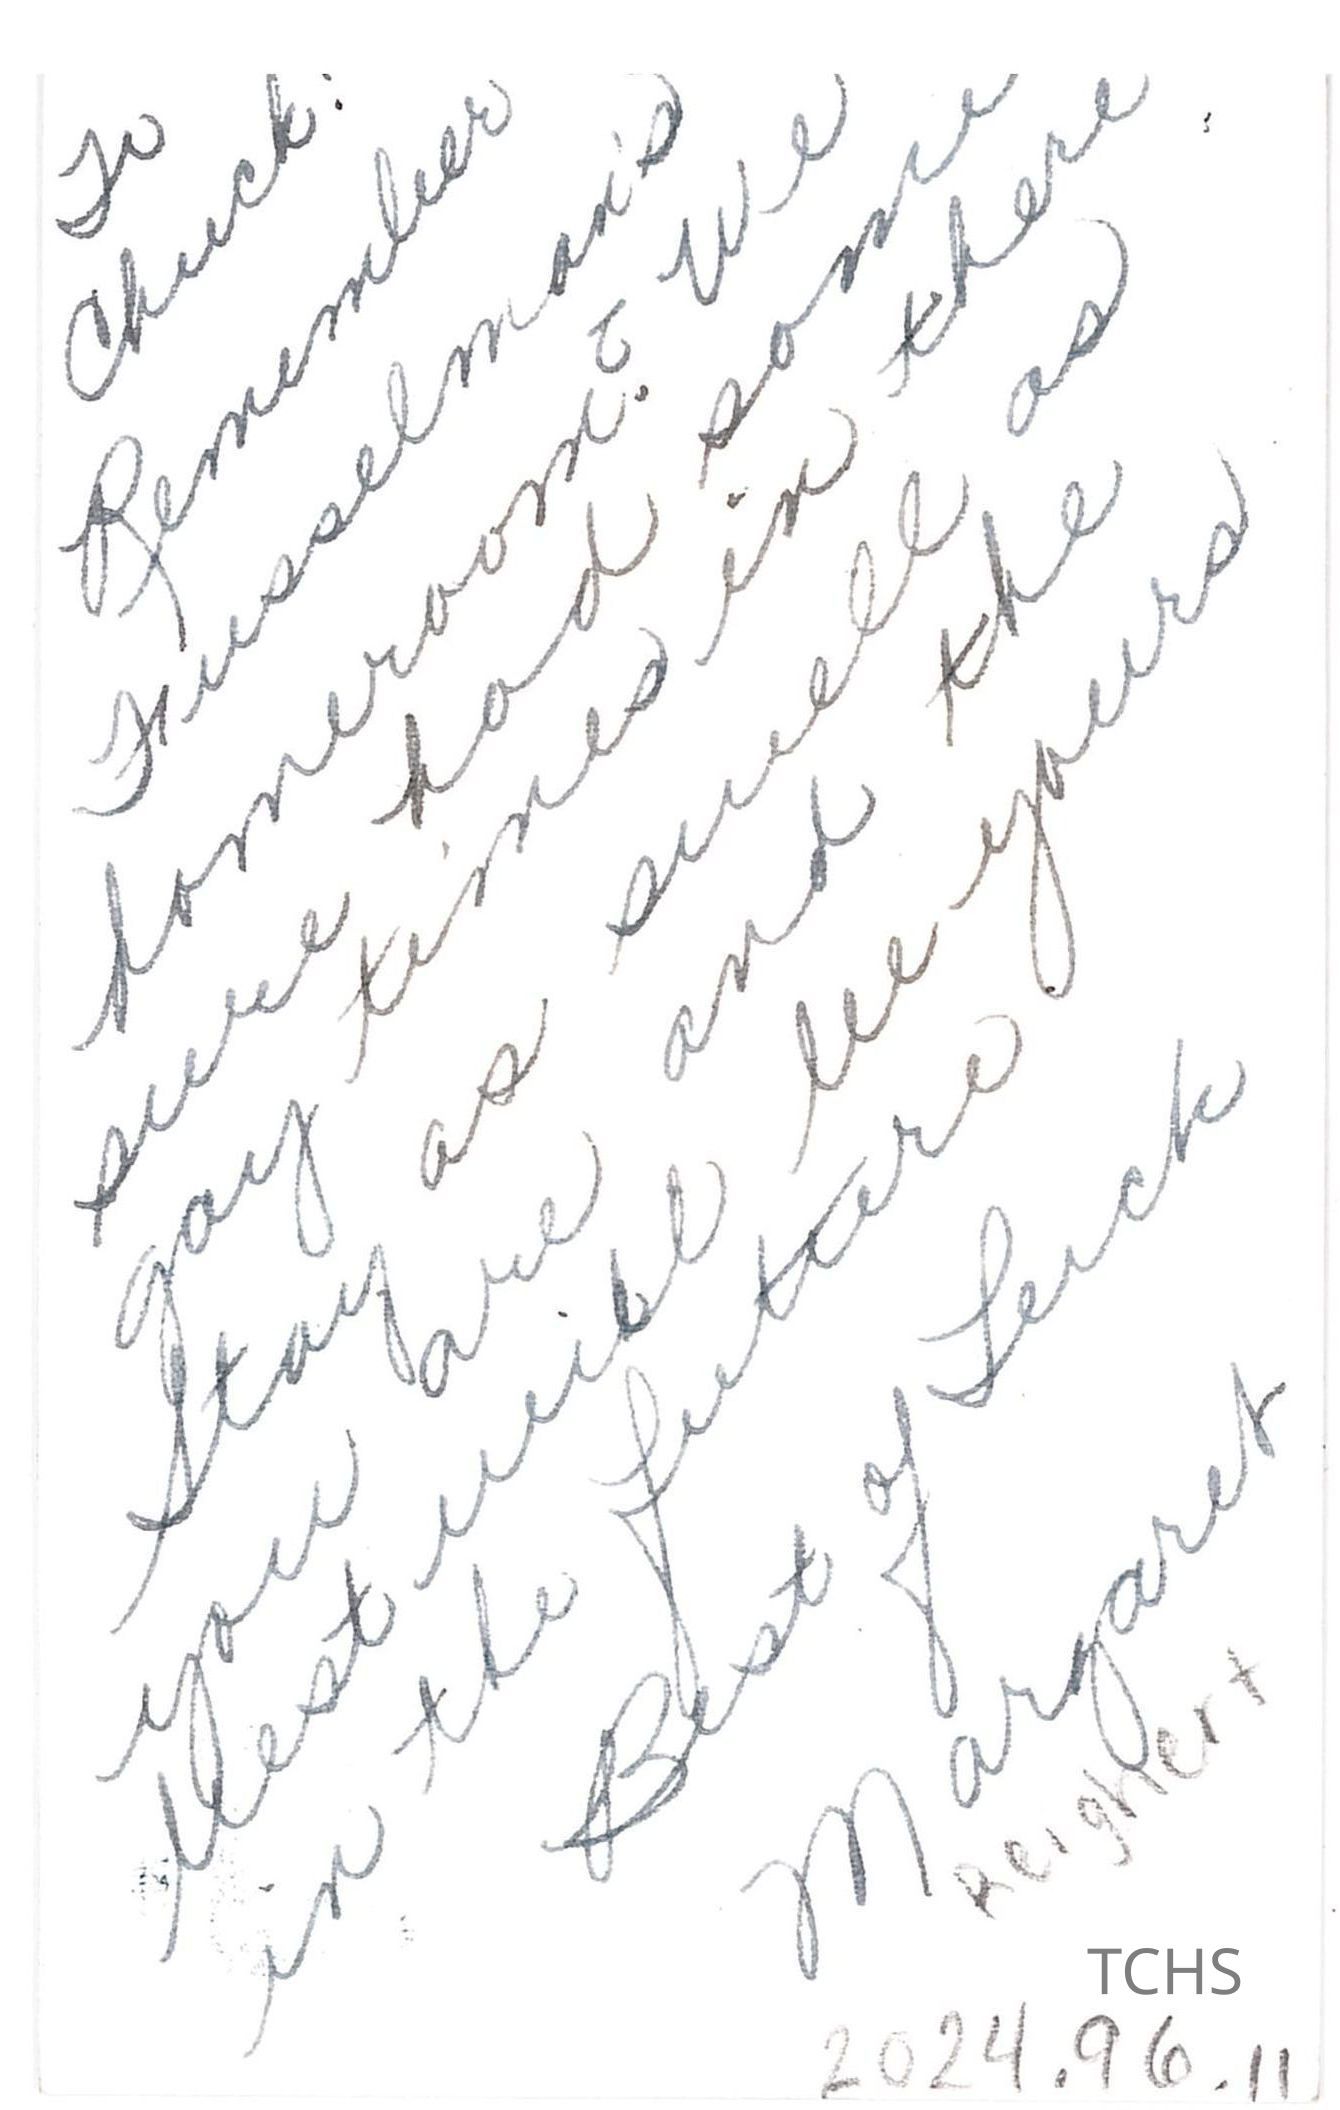 To
Chuck:
Remember
Fusselman's
homeroom? We
sure had some
gay times in there
Stay as swell as
you are and the
best will be yours
in the future
Best of Luck
Margaret
Reighert
TCHS
2024.96.11